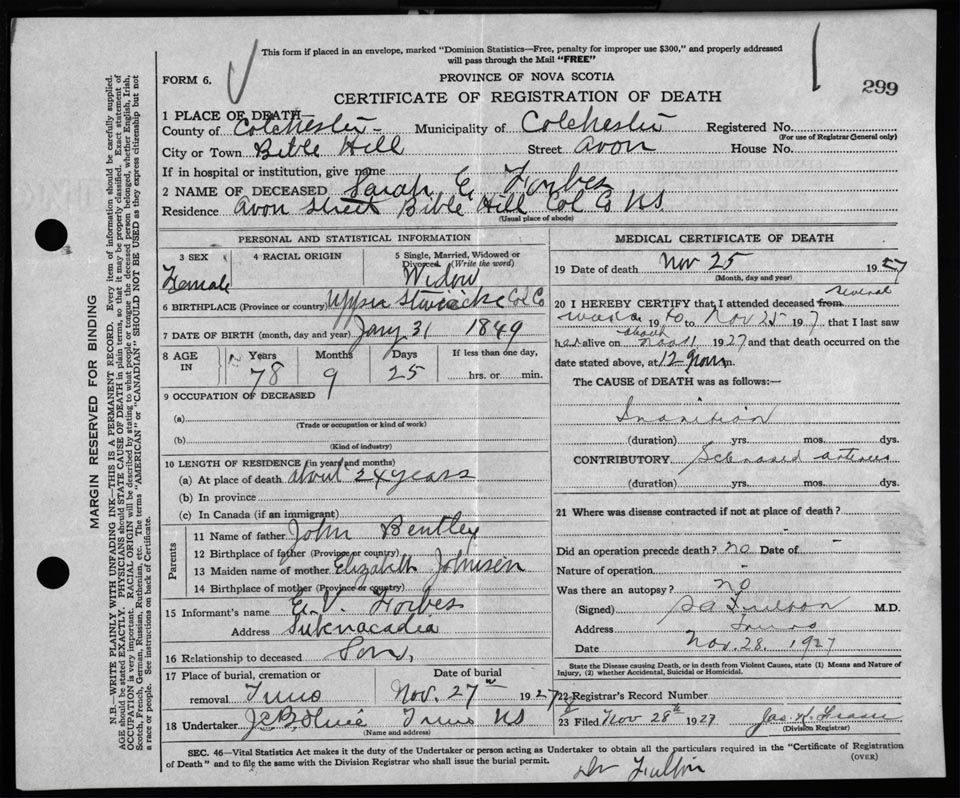 This form if placed in an envelope, marked "Dominion Statistics—Free, penalty for improper use $300," and properly addressed
will pass through the Mail "FREE"
FORM 6.
PROVINCE OF NOVA SCOTIA
299
CERTIFICATE OF REGISTRATION OF DEATH
1 PLACE OF DEATH—
County of Colchester Municipality of Colchester Registered No.
(For use of Registrar General only)
City or Town Bible Hill Street Avon House No.
If in hospital or institution, give name
2 NAME OF DECEASED Sarah E. Forbes
Residence Avon Street Bible Hill Col Co NS
(Usual place of abode)
PERSONAL AND STATISTICAL INFORMATION
3 SEX 4 RACIAL ORIGIN 5 Single, Married, Widowed or
Divorced (Write the word)
Female Widow
6 BIRTHPLACE (Province or country) Upper Stewiacke Col Co
7 DATE OF BIRTH (month, day and year) Jany 31 1849
8 AGE IN Years Months Days If less than one day,
78 9 25 hrs. or min.
9 OCCUPATION OF DECEASED
(a)
(Trade or occupation or kind of work)
(b)
(Kind of industry)
10 LENGTH OF RESIDENCE (in years and months)
(a) At place of death about 24 years
(b) In province
(c) In Canada (if an immigrant)
Parents
11 Name of father John Bentley
12 Birthplace of father (Province or country)
13 Maiden name of mother Elizabeth Johnsen
14 Birthplace of mother (Province or country)
15 Informant's name E. V. Forbes
Address Subenacadia
16 Relationship to deceased Son,
17 Place of burial, cremation or Date of burial
removal Truro Nov. 27th 1927
18 Undertaker Truro NS
(Name and address)
MEDICAL CERTIFICATE OF DEATH
19 Date of death Nov 25 1927
(Month, day and year)
20 I HEREBY CERTIFY that I attended deceased from several
19 to to Nov 25 1927 that I last saw
her alive on about 1927 and that death occurred on the
date stated above, at 12 Noon m.
The CAUSE of DEATH was as follows:—
Inanition
(duration) yrs. mos. dys.
CONTRIBUTORY arteries
(duration) yrs. mos. dys.
21 Where was disease contracted if not at place of death?
Did an operation precede death? no Date of -
Nature of operation -
Was there an autopsy? no
(Signed) M.D.
Address Truro
Date Nov. 28, 1927
State the Disease causing Death, or in death from Violent Causes, state (1) Means and Nature of
Injury, (2) whether Accidental, Suicidal or Homicidal.
22 Registrar's Record Number
23 Filed Nov 28th 1927
(Division Registrar)
SEC. 46—Vital Statistics Act makes it the duty of the Undertaker or person acting as Undertaker to obtain all the particulars required in the "Certificate of Registration
of Death" and to file the same with the Division Registrar who shall issue the burial permit.
(OVER)
Dr Fulton
MARGIN RESERVED FOR BINDING
N.B.—WRITE PLAINLY WITH UNFADING INK—THIS IS A PERMANENT RECORD. Every item of information should be carefully supplied.
AGE should be stated EXACTLY. PHYSICIANS should STATE CAUSE OF DEATH in plain terms, so that it may be properly classified. Exact statement of
OCCUPATION is very important. RACIAL ORIGIN will be described by stating to what people or tongue the deceased person belonged, whether English, Irish,
Scotch, French, German, Russian, Ruthenian, etc. The terms "AMERICAN" or "CANADIAN" SHOULD NOT BE USED as they express citizenship but not
a race or people. See instructions on back of Certificate.